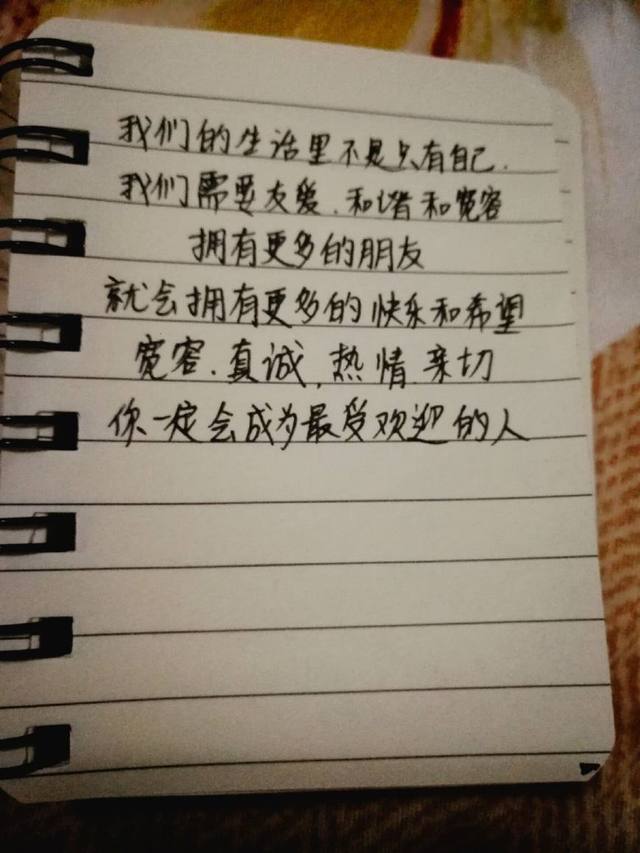 我们的生活里不是只有自己.
我们需要友爱.和谐和宽容
拥有更多的朋友
就会拥有更多的快乐和希望
宽容.真诚.热情.亲切
你一定会成为最受欢迎的人